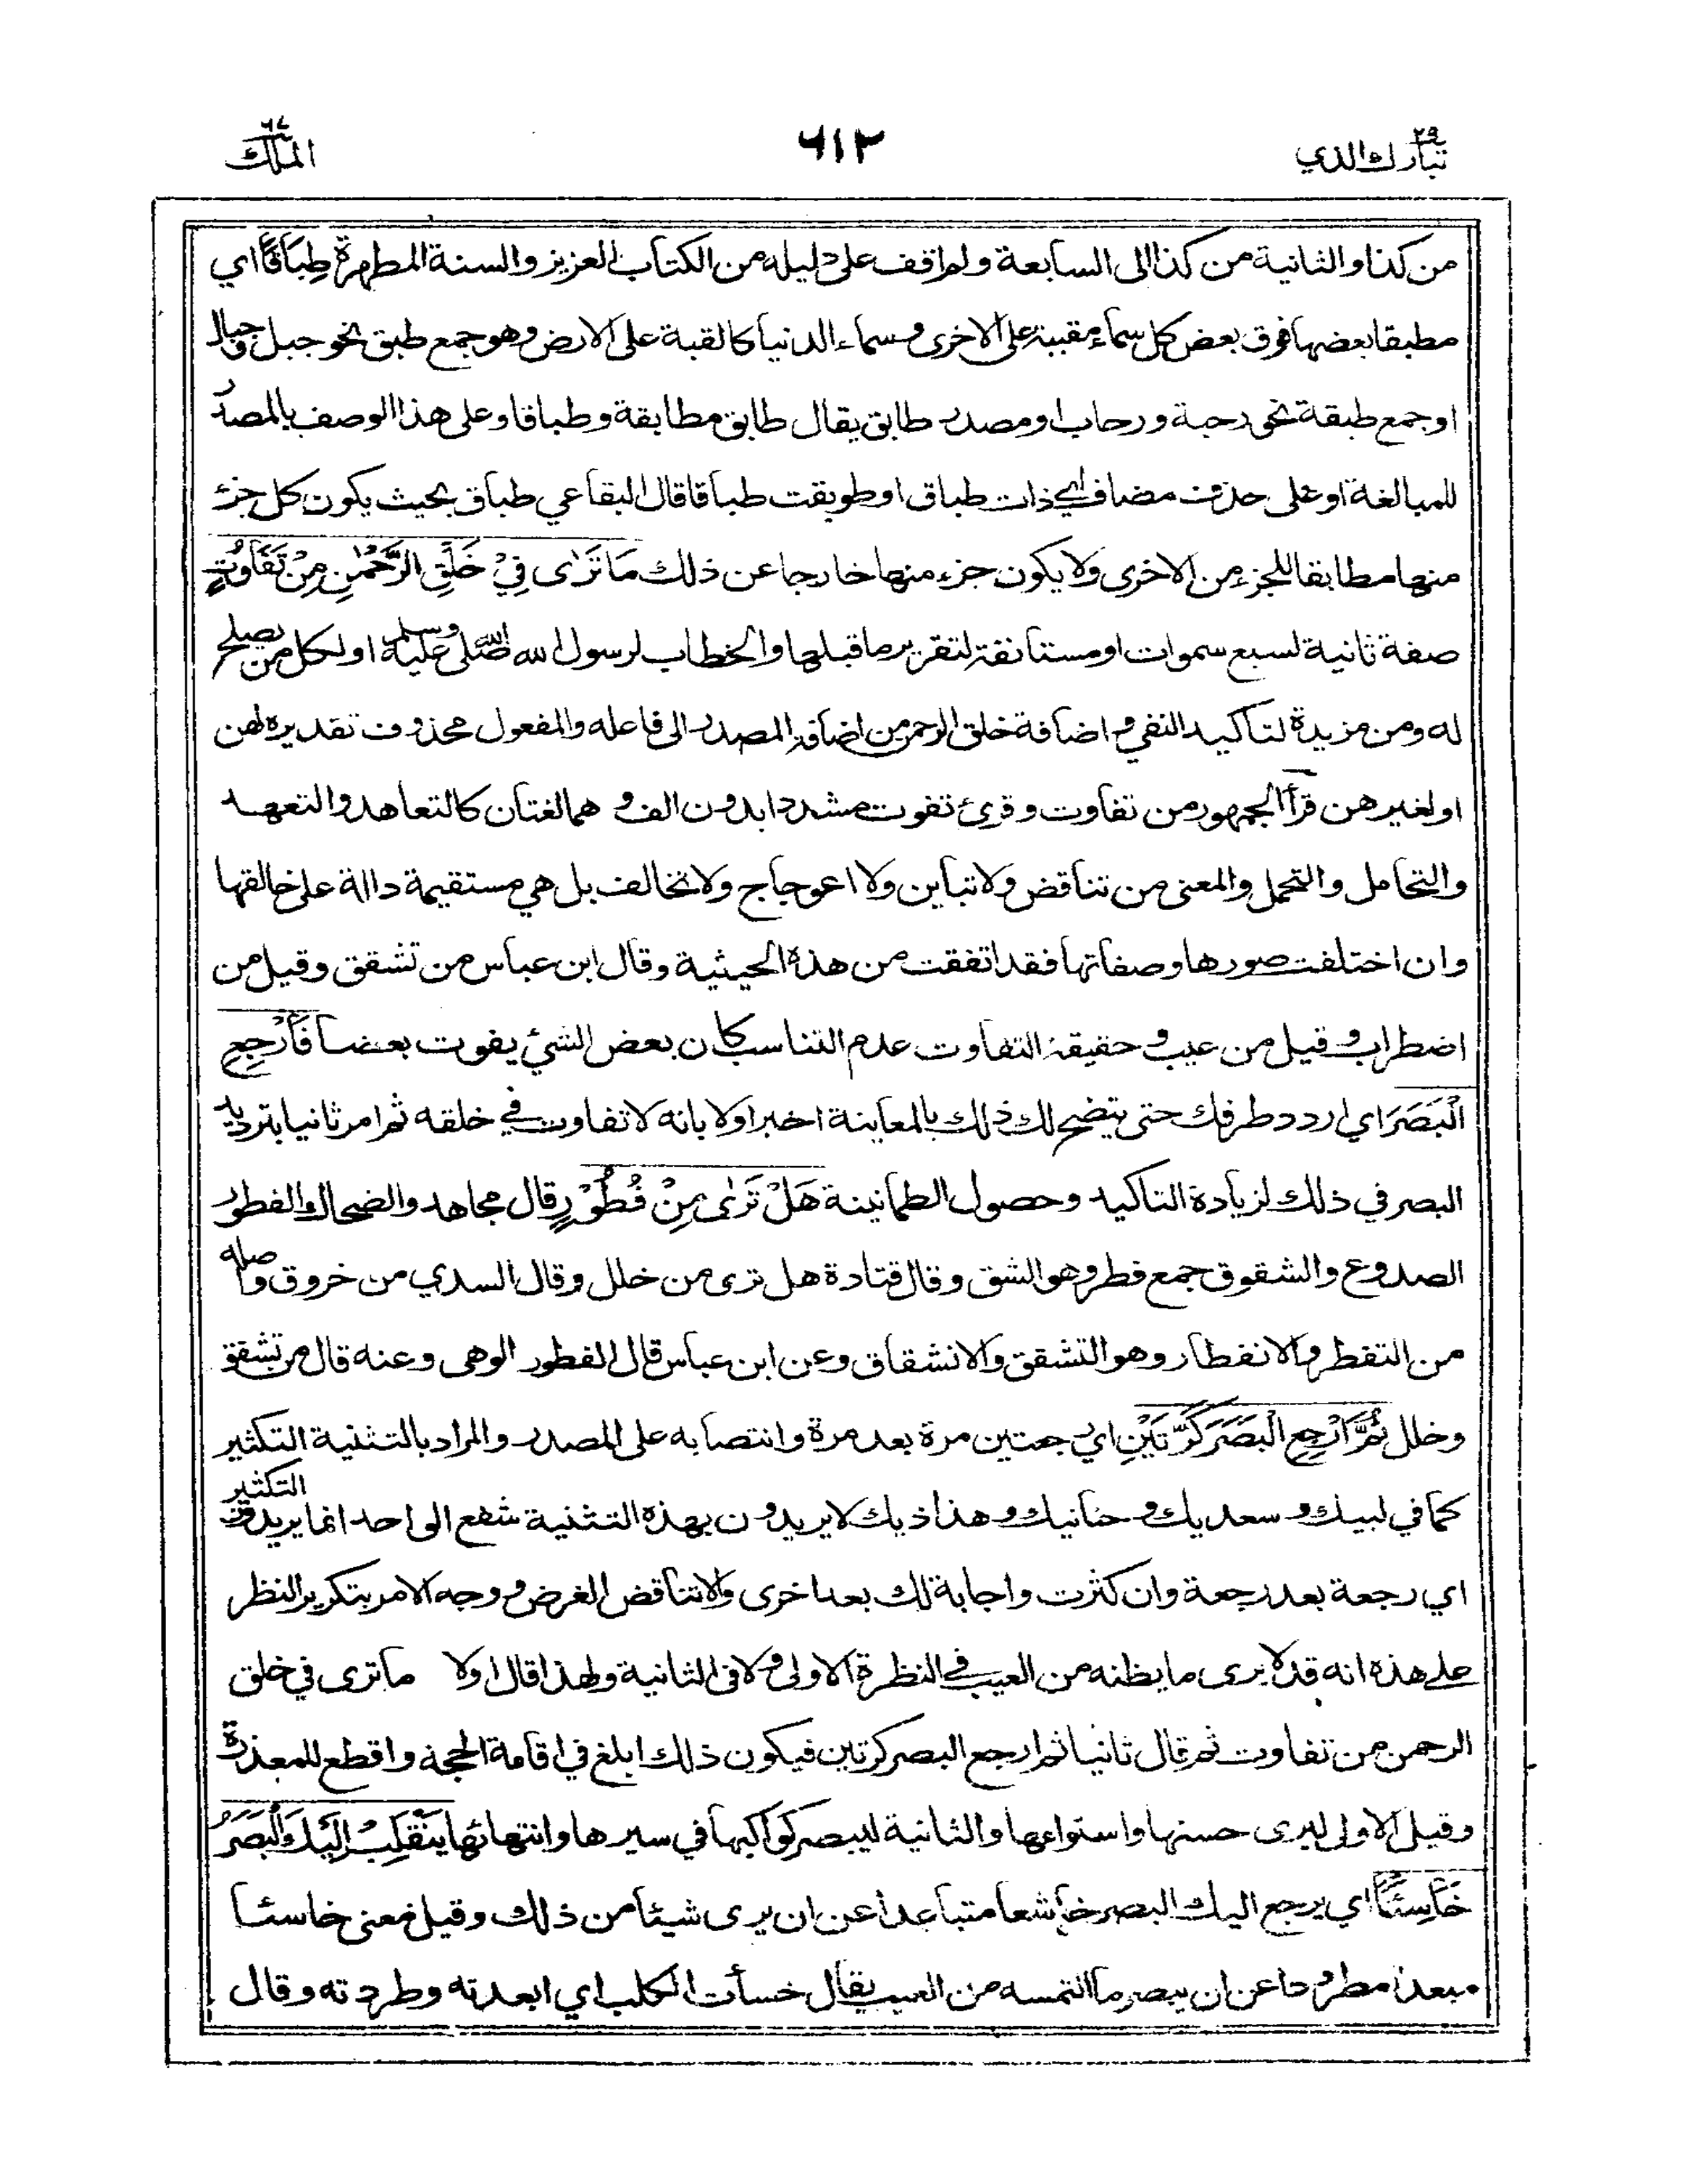 ٢٩
تبارك الذي
٦١٢
٦٧
الملك
من كذا والثانية من كذا الى السابعة ولم اقف على دليله من الكتاب العزيز والسنة المطهرة طِبَاقًا اي
مطبقا بعضها فوق بعض كل سماء مقببة على الاخرى وسماء الدنيا كالقبة على الارض وهو جمع طبق نحو جبل وجبال
او جمع طبقة نحو رحبة ورحاب او مصدر طابق يقال طابق مطابقة وطباقا وعلى هذا الوصف بالمصدر
للمبالغة او على حذف مضاف اي ذات طباق او طوبقت طباقا قال البقاعي طباق بحيث يكون كل جزء
منها مطابقا للجزء من الاخرى ولا يكون جزء منها خارجا عن ذلك مَا تَرٰى فِيْ خَلْقِ الرَّحْمٰنِ مِنْ تَفَاوُتٍ
صفة ثانية لسبع سموات او مستأنفة لتقرير ما قبلها والخطاب لرسول الله صلى الله عليه وسلم او لكل من يصلح
له ومن مزيدة لتأكيد النفي واضافة خلق الرحمن من اضافة المصدر الى فاعله والمفعول محذوف تقديره لهن
او لغيرهن قرأ الجمهور من تفاوت وقرئ تفوت مشددا بدون الف و هما لغتان كالتعاهد والتعهد
والتحامل والتحمل والمعنى من تناقض ولا تباين ولا اعوجاج ولا تخالف بل هي مستقيمة دالة على خالقها
وان اختلفت صورها وصفاتها فقد اتفقت من هذه الحيثية وقال ابن عباس من تشقق وقيل من
اضطراب وقيل من عيب وحقيقة التفاوت عدم التناسب كان بعض الشئ يفوت بعضا فَارْجِعِ
الْبَصَرَ اي اردد طرفك حتى يتضح لك ذلك بالمعاينة اخبر اولا بانه لا تفاوت في خلقه ثم امر ثانيا بترديد
البصر في ذلك لزيادة التاكيد وحصول الطمانينة هَلْ تَرٰى مِنْ فُطُوْرٍ قال مجاهد والضحاك والفطور
الصدوع والشقوق جمع فطر وهو الشق وقال قتادة هل ترى من خلل وقال السدي من خروق واصله
من التفطر والانفطار وهو التشقق والانشقاق وعن ابن عباس قال الفطور الوهى وعنه قال من تشقق
وخلل ثُمَّ ارْجِعِ الْبَصَرَ كَرَّتَيْنِ اي رجعتين مرة بعد مرة وانتصابه على المصدر والمراد بالتثنية التكثير
كما في لبيك وسعديك وحنانيك وهذاذيك لا يريدون بهذه التثنية شفع الواحد انما يريدون التكثير
اي رجعة بعد رجعة وان كثرت واجابة لك بعد اخرى والا تناقض الغرض ووجه الامر بتكرير النظر
على هذه انه قد لا يرى ما يظنه من العيب في النظرة الاولى ولا في الثانية ولهذا قال اولا ما ترى في خلق
الرحمن من تفاوت ثم قال ثانيا ثم ارجع البصر كرتين فيكون ذلك ابلغ في اقامة الحجة واقطع للمعذرة
وقيل الاولى ليرى حسنها واستواءها والثانية ليبصر كواكبها في سيرها وانتهائها يَنْقَلِبْ اِلَيْكَ الْبَصَرُ
خَاسِئًا اي يرجع اليك البصر خاشعا متباعدا عن ان يرى شيئا من ذلك وقيل معنى خاسئا
مبعدا مطروحا عن ان يبصر ما التمسه من العيب يقال خسأت الكلب اي ابعدته وطردته وقال